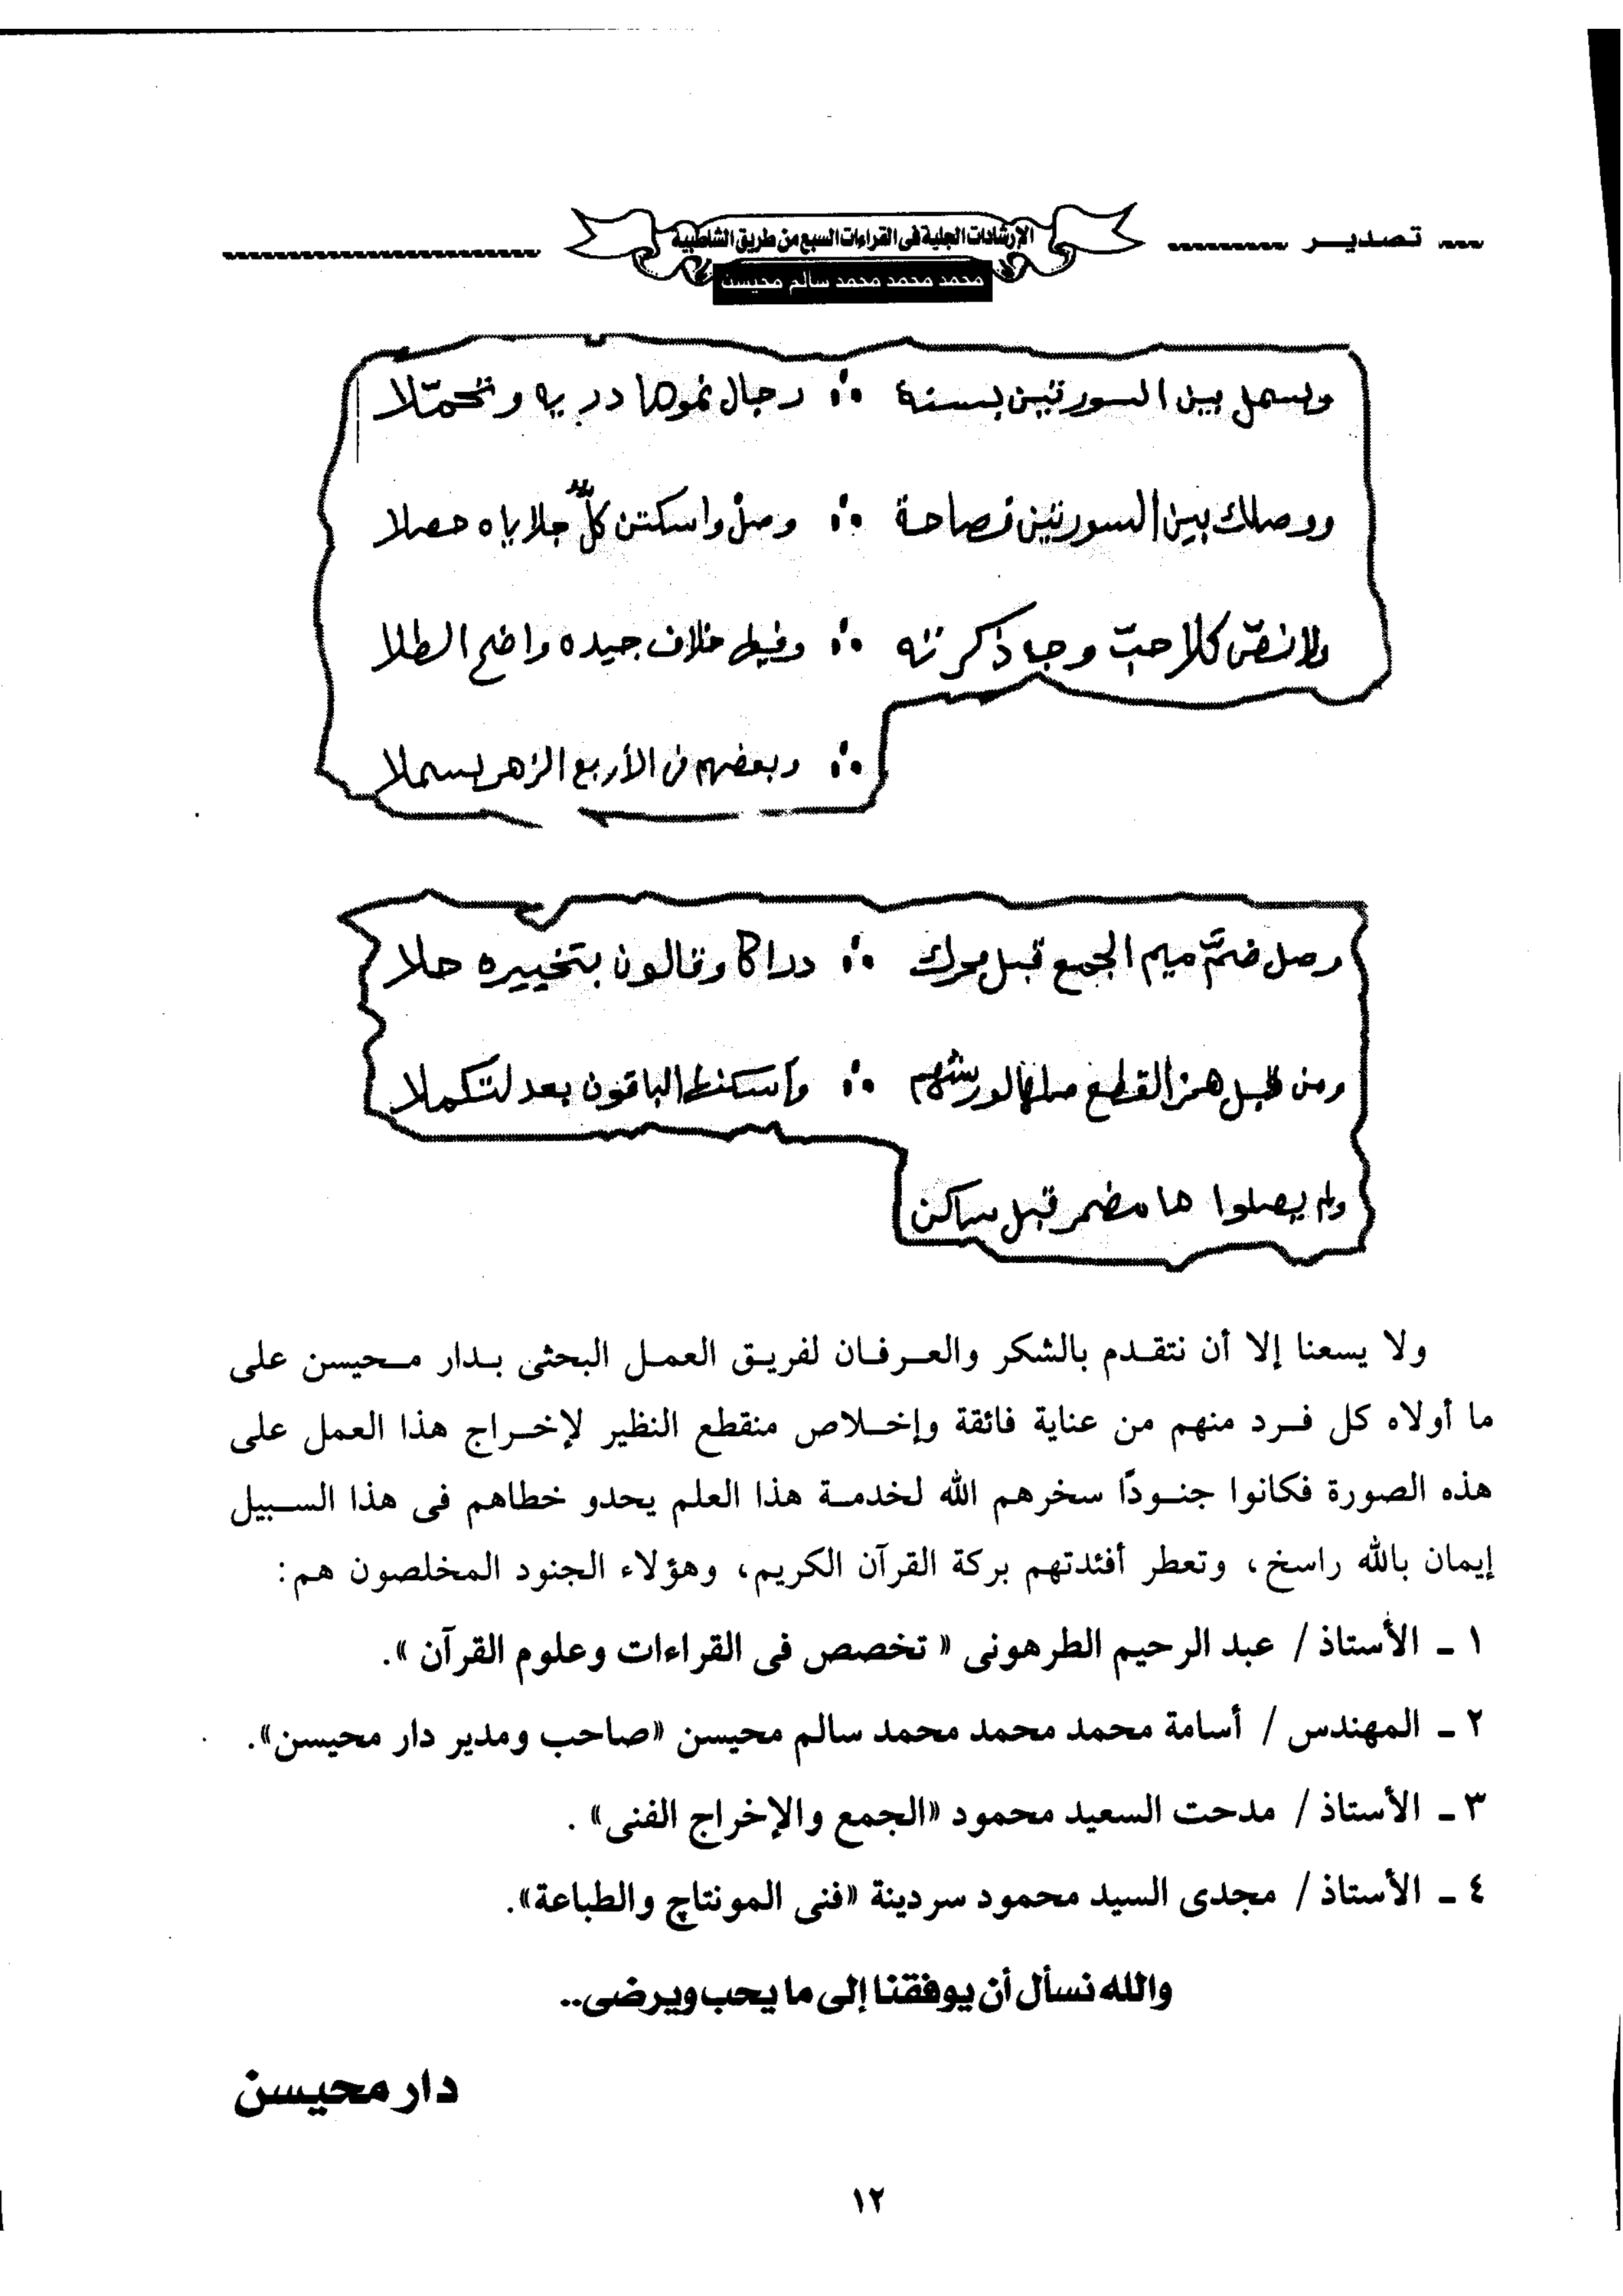 تصدير
الإرشادات الجلية فى القراءات السبع من طريق الشاطبية
محمد محمد محمد سالم محيسن
وبسمل بين السورتين بسنة ∴ رجال نموها درية وتحمّلا
ووصلك بين السورتين فصاحة ∴ وصلْ واسكتن كلٌّ جلاياه حصلا
ولا نصّ كلا حبّ وجه ذكرته ∴ وفيها خلاف جيده واضح الطلا
∴ وبعضهم فى الأربع الزهر بسملا
وصل ضمَّ ميم الجمع قبل محرك ∴ دراكا وقالون بتخييره حلا
ومن قبل همز القطع صلها لورشهم ∴ وأسكنها الباقون بعد لتكملا
ولم يصلوا ها مضمر قبل ساكن
ولا يسعنا إلا أن نتقدم بالشكر والعرفان لفريق العمل البحثى بدار محيسن على
ما أولاه كل فرد منهم من عناية فائقة وإخلاص منقطع النظير لإخراج هذا العمل على
هذه الصورة فكانوا جنودًا سخرهم الله لخدمة هذا العلم يحدو خطاهم فى هذا السبيل
إيمان بالله راسخ، وتعطر أفئدتهم بركة القرآن الكريم، وهؤلاء الجنود المخلصون هم:
١ ـ الأستاذ / عبد الرحيم الطرهونى « تخصص فى القراءات وعلوم القرآن ».
٢ ـ المهندس / أسامة محمد محمد محمد سالم محيسن «صاحب ومدير دار محيسن».
٣ ـ الأستاذ / مدحت السعيد محمود «الجمع والإخراج الفنى» .
٤ ـ الأستاذ / مجدى السيد محمود سردينة «فنى المونتاچ والطباعة».
والله نسأل أن يوفقنا إلى ما يحب ويرضى..
دار محيسن
١٢